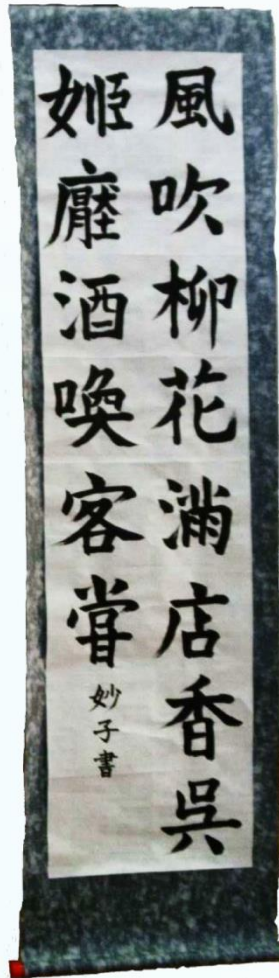 風吹柳花滿店香呉
姫壓酒喚客嘗
妙子書